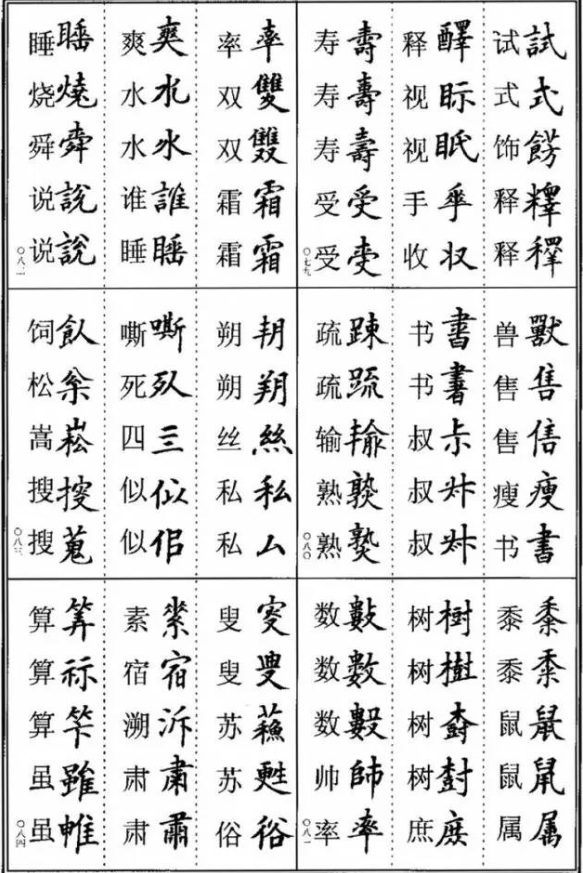 试試
式式
饰餝
释釋
释釋
释醳
视眎
视眡
手𠂿
收収
寿壽
寿壽
寿壽
受受
受
〇七九
兽獸
售售
售
瘦瘦
书書
书書
书書
叔尗
叔
叔
疏踈
疏疏
输输
熟
熟
〇八〇
黍黍
黍
鼠鼠
鼠鼠
属属
树樹
树樹
树
树尌
庶庻
数數
数數
数數
帅帥
率率
〇八一
率率
双雙
双
霜霜
霜霜
爽爽
水
水水
谁誰
睡睡
睡睡
烧燒
舜舜
说説
说説
〇八二
朔
朔朔
丝絲
私私
私厶
嘶嘶
死
四亖
似似
似佀
饲飤
松枀
嵩崧
搜搜
搜蒐
〇八三
叟叜
叟叟
苏蘓
苏甦
俗俗
素
宿宿
溯泝
肃肅
肃
算筭
算祘
算笇
虽雖
虽
〇八四